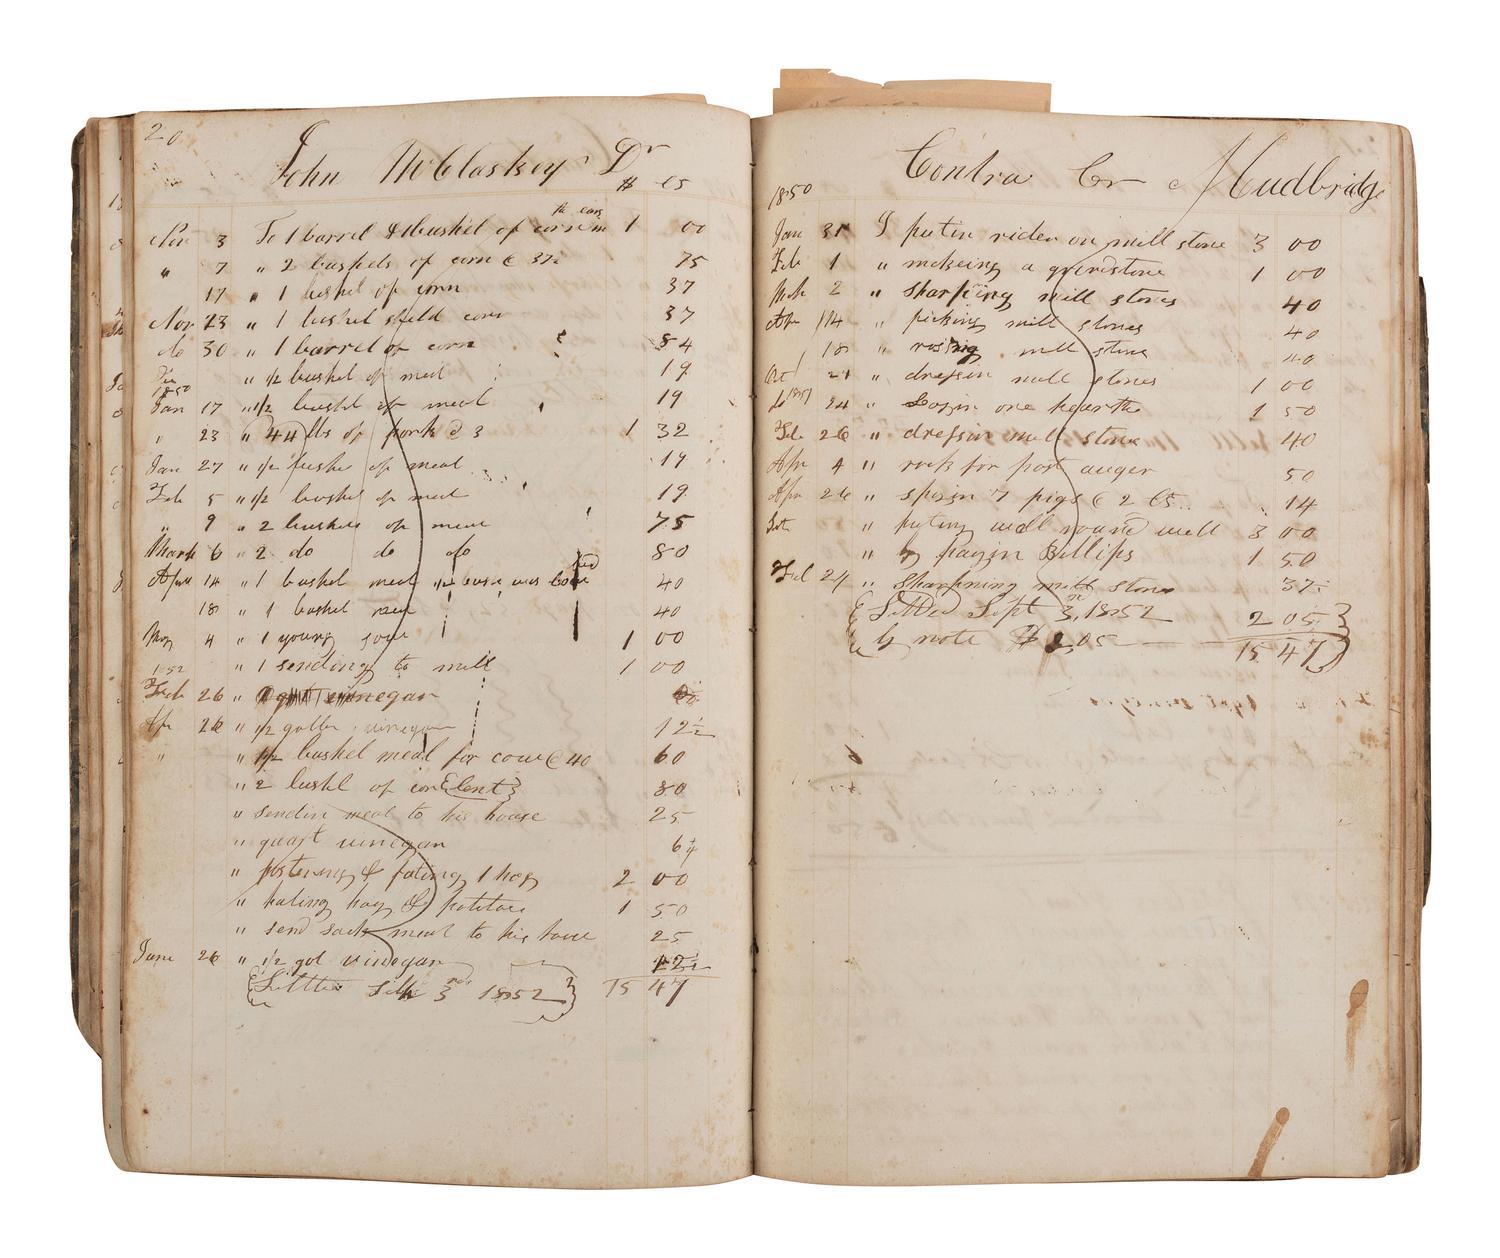 20
John McClaskey Dr
$ cs
the ears
Nov 3 To 1 barrel & 1 bushel of corn in 1 00
" 7 " 2 bushels of corn @ 37½ 75
17 " 1 bushel of corn 37
Nov 23 " 1 bushel sheld corn 37
do 30 " 1 barrel of corn 84
Dec " ½ bushel of meal 19
1850
Jan 17 " ½ bushel of meal 19
" 23 " 44 lbs of pork @ 3 1 32
Jan 27 " ½ bushel of meal 19
Feb 5 " ½ bushel of meal 19
" 9 " 2 bushels of meal 75
March 6 " 2 do do do 80
April 14 " 1 bushel meal 40
18 " 1 bushel 40
May 4 " 1 young sow 1 00
" 1 sending to mill 1 00
1852
Feb 26 " vinegar
Apr 26 " ½ gallon vinegar 12½
" " 1½ bushel meal for cow @ 40 60
" 2 bushl of corn {lent} 80
" sendin meal to his house 25
" quart vinegar 6¼
" & fating 1 hog 2 00
" hauling hay & potatoes 1 50
" send sack meal to his house 25
June 26 " ½ gal vinegar 12½
{Settled 3rd 1852} 15 47
Contra Cr Mudbridge
1850
Jan 31 I putin rider on mill stone 3 00
Feb 1 " makeing a grindstone 1 00
Mch 2 " sharping mill stones 40
Apr 14 " picking mill stones 40
18 " mill stone 40
Oct 21 " dressin mill stones 1 00
do 1851 24 " one hearth 1 50
Feb 26 " dressin mill stone 40
Apr 4 " rock for post auger 50
Apr 26 " spain 7 pigs @ 2 cts 14
" puting wall round well 3 00
" by payin Billips 1 50
Feb 24 " Sharpning mill stones 37½
{Settled Sept 3rd, 1852 2 05}
{by note $2,05 15 47}